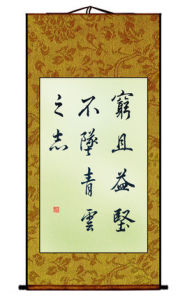 窮且益堅
不墜青雲
之志